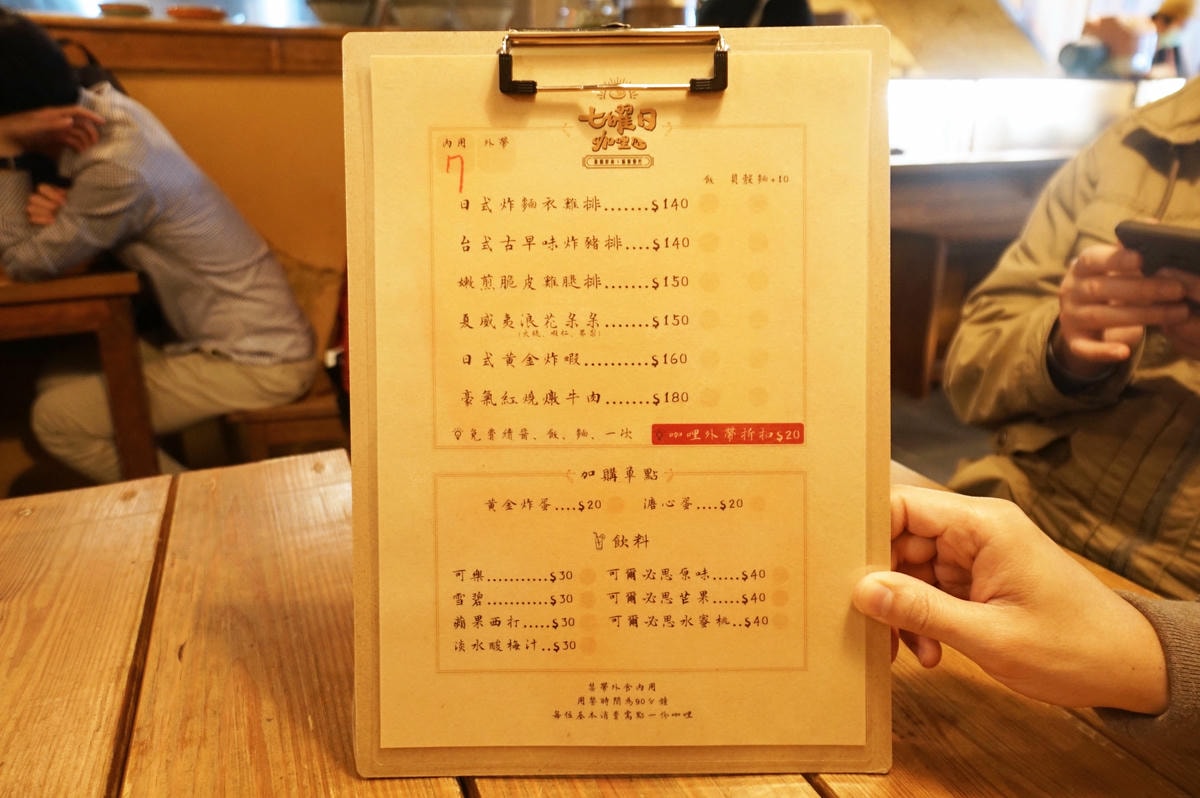 七曜日
咖哩
內用 外帶
7
飯 貝殼麵+10
日式炸麵衣雞排.......$140
台式古早味炸豬排....$140
嫩煎脆皮雞腿排.......$150
夏威夷浪花朵朵.......$150
日式黃金炸蝦..........$160
豪氣紅燒燉牛肉.......$180
免費續醬、飯、麵、一次 咖哩外帶折扣$20
加購單點
黃金炸蛋....$20 溏心蛋....$20
飲料
可樂...........$30 可爾必思原味.....$40
雪碧...........$30 可爾必思芒果.....$40
蘋果西打.....$30 可爾必思水蜜桃..$40
淡水酸梅汁..$30
禁帶外食內用
用餐時間為90分鐘
每位基本消費需點一份咖哩